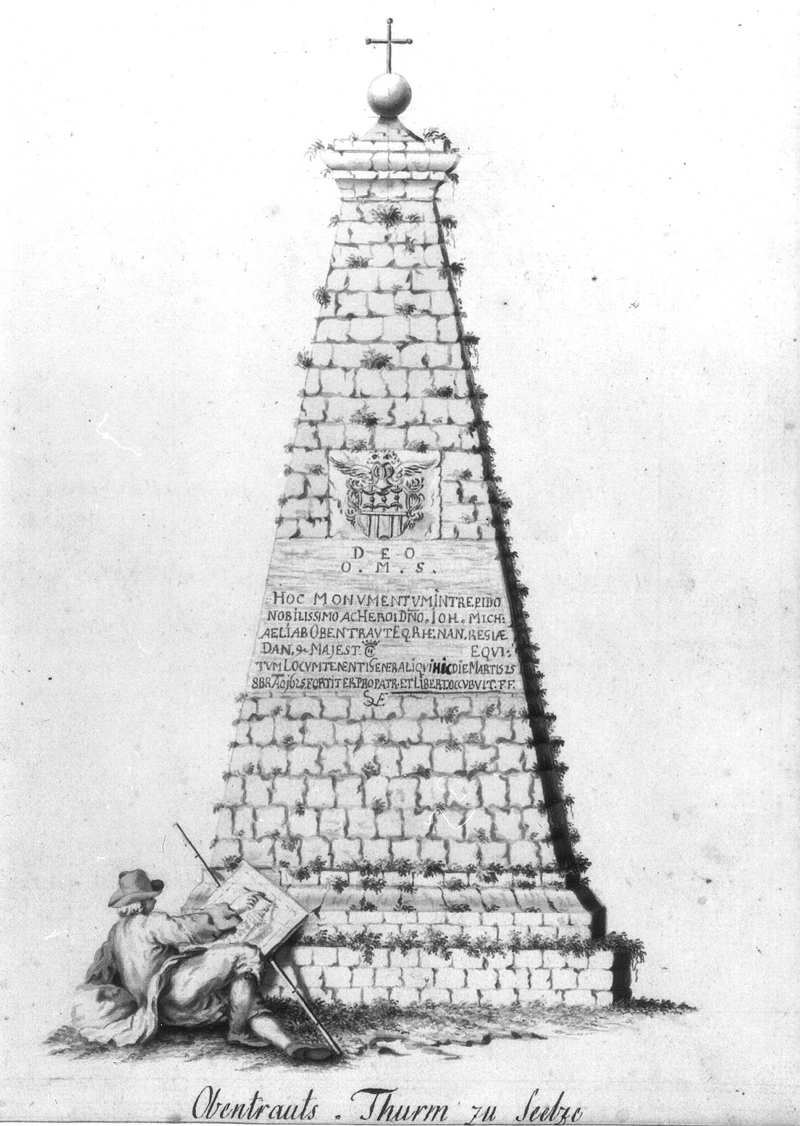 D E O
O. M. S.
HOC MONVMENTVM INTREPIDO
NOBILISSIMO AC HEROI DÑO. IOH. MICH:
AELI AB OBENTRAVT EQ. RHENAN, REGIÆ
DAN, & MAJEST. EQVI-
TVM LOCVMTENENTI GENERALI QVI HIC DIE MARTIS 25
8BR. AO 1625 FORTITER PRO PATR. ET LIBERT. OCCVBVIT. F F.
Obentrauts - Thurm zu Seelze